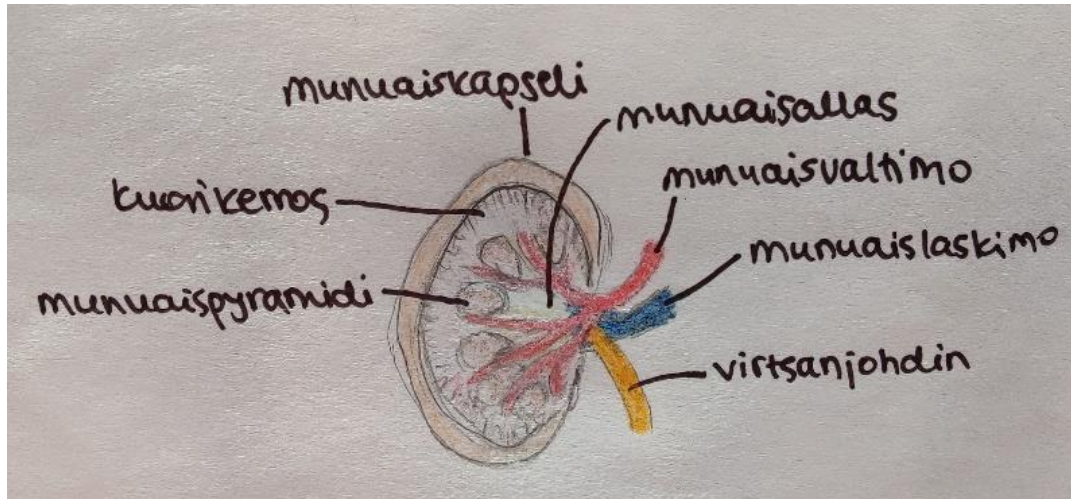 munuaiskapseli
munuaisallas
munuaisvaltimo
kuorikerros
munuaislaskimo
munuaispyramidi
virtsanjohdin